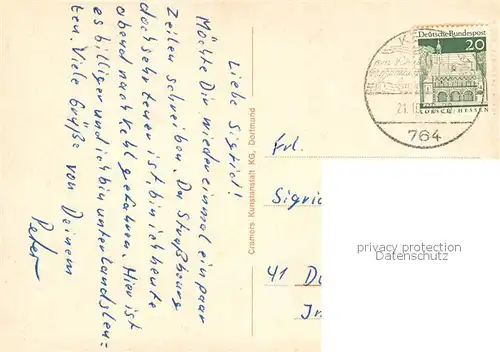 Liebe Sigrid!
Möchte Dir wieder einmal ein paar
Zeilen schreiben. Da Straßbourg
doch sehr teuer ist, bin ich heute
abend nach Kehl gefahren. Hier ist
es billiger und ich bin unter Landsleu=
ten. Viele Grüße von Deinem
Peter
Cramers Kunstanstalt KG, Dortmund
Deutsche Bundespost
20
LORSCH / HESSEN
764
Frl.
Sigrid
41
privacy protection
Datenschutz